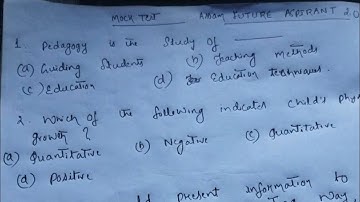 MOCK TEST ASSAM FUTURE ASPIRANT 2.0
1. Pedagogy is the study of ______
(a) Guiding students (b) Teaching Methods
(c) Education (d) Education techniques.
2. Which of the following indicates child's phy
growth?
(a) Quantitative (b) Negative (c) Quantitative
(d) Positive
present information to
way